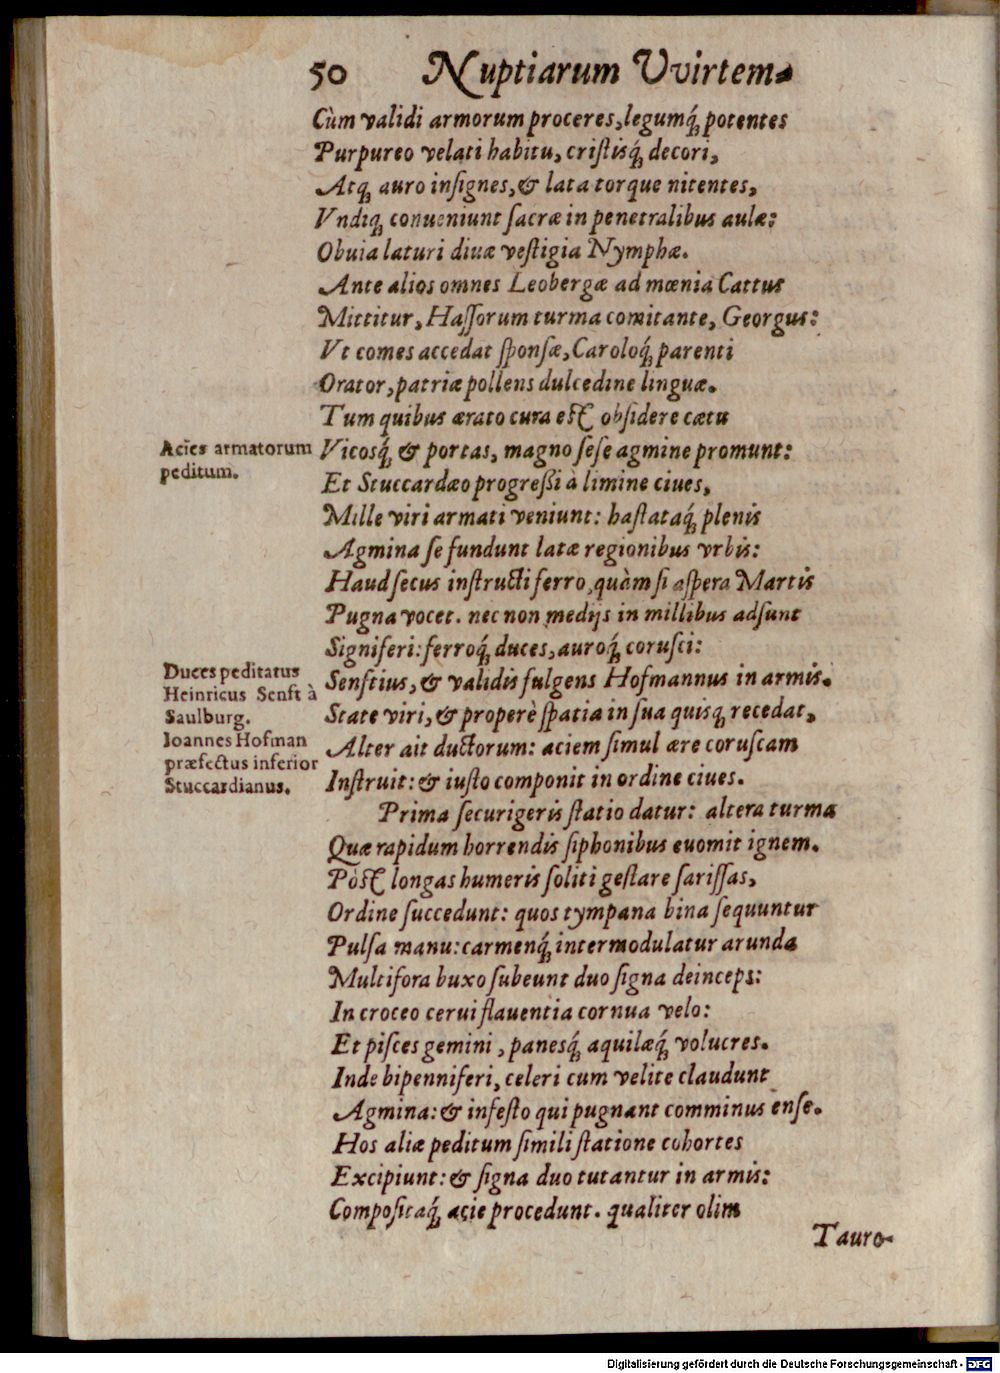 50 Nuptiarum Vvirtem-
Cùm validi armorum proceres, legumq́; potentes
Purpureo velati habitu, cristisq́; decori,
Atq; auro insignes, & lata torque nitentes,
Vndiq; conueniunt sacræ in penetralibus aulæ:
Obuia laturi diuæ vestigia Nymphæ.
Ante alios omnes Leobergæ ad mœnia Cattus
Mittitur, Hassorum turma comitante, Georgus:
Vt comes accedat sponsæ, Caroloq́; parenti
Orator, patriæ pollens dulcedine linguæ.
Tum quibus ærato cura est obsidere cætu
Acies armatorum peditum.
Vicosq́; & portas, magno sese agmine promunt:
Et Stuccardæo progreßi à limine ciues,
Mille viri armati veniunt: hastataq́; plenis
Agmina se fundunt latæ regionibus vrbis:
Haud secus instructi ferro, quàm si aspera Martis
Pugna vocet. nec non medijs in millibus adsunt
Signiferi: ferroq́; duces, auroq́; corusci:
Duces peditatus
Heinricus Senft à
Saulburg.
Ioannes Hofman
præfectus inferior
Stuccardianus.
Senftius, & validis fulgens Hofmannus in armis.
State viri, & properè spatia in sua quisq; recedat,
Alter ait ductorum: aciem simul ære coruscam
Instruit: & iusto componit in ordine ciues.
Prima securigeris statio datur: altera turma
Quæ rapidum horrendis siphonibus euomit ignem.
Pòst longas humeris soliti gestare sarissas,
Ordine succedunt: quos tympana bina sequuntur
Pulsa manu: carmenq́; intermodulatur arunda
Multifora buxo subeunt duo signa deinceps:
In croceo cerui flauentia cornua velo:
Et pisces gemini, panesq́; aquilæq́; volucres.
Inde bipenniferi, celeri cum velite claudunt
Agmina: & infesto qui pugnant comminus ense.
Hos aliæ peditum simili statione cohortes
Excipiunt: & signa duo tutantur in armis:
Compositaq́; acie procedunt. qualiter olim
Tauro-
Digitalisierung gefördert durch die Deutsche Forschungsgemeinschaft - DFG